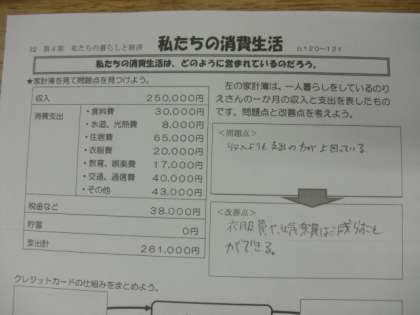 32 第4章 私たちの暮らしと経済
私たちの消費生活
p.120~121
私たちの消費生活は、どのように営まれているのだろう。
★家計簿を見て問題点を見つけよう。
収入 250,000円
消費支出
・食料費 30,000円
・水道、光熱費 8,000円
・住居費 65,000円
・衣服費 20,000円
・教育、娯楽費 17,000円
・交通、通信費 40,000円
・その他 43,000円
税金など 38,000円
貯蓄 0円
支出計 261,000円
左の家計簿は、一人暮らしをしているのり
えさんの一か月の収入と支出を表したもの
です。問題点と改善点を考えよう。
<問題点>
収入よりも支出の方が上回っている
<改善点>
衣服費や娯楽費は減らすこと
ができる。
クレジットカードの仕組みをまとめよう。